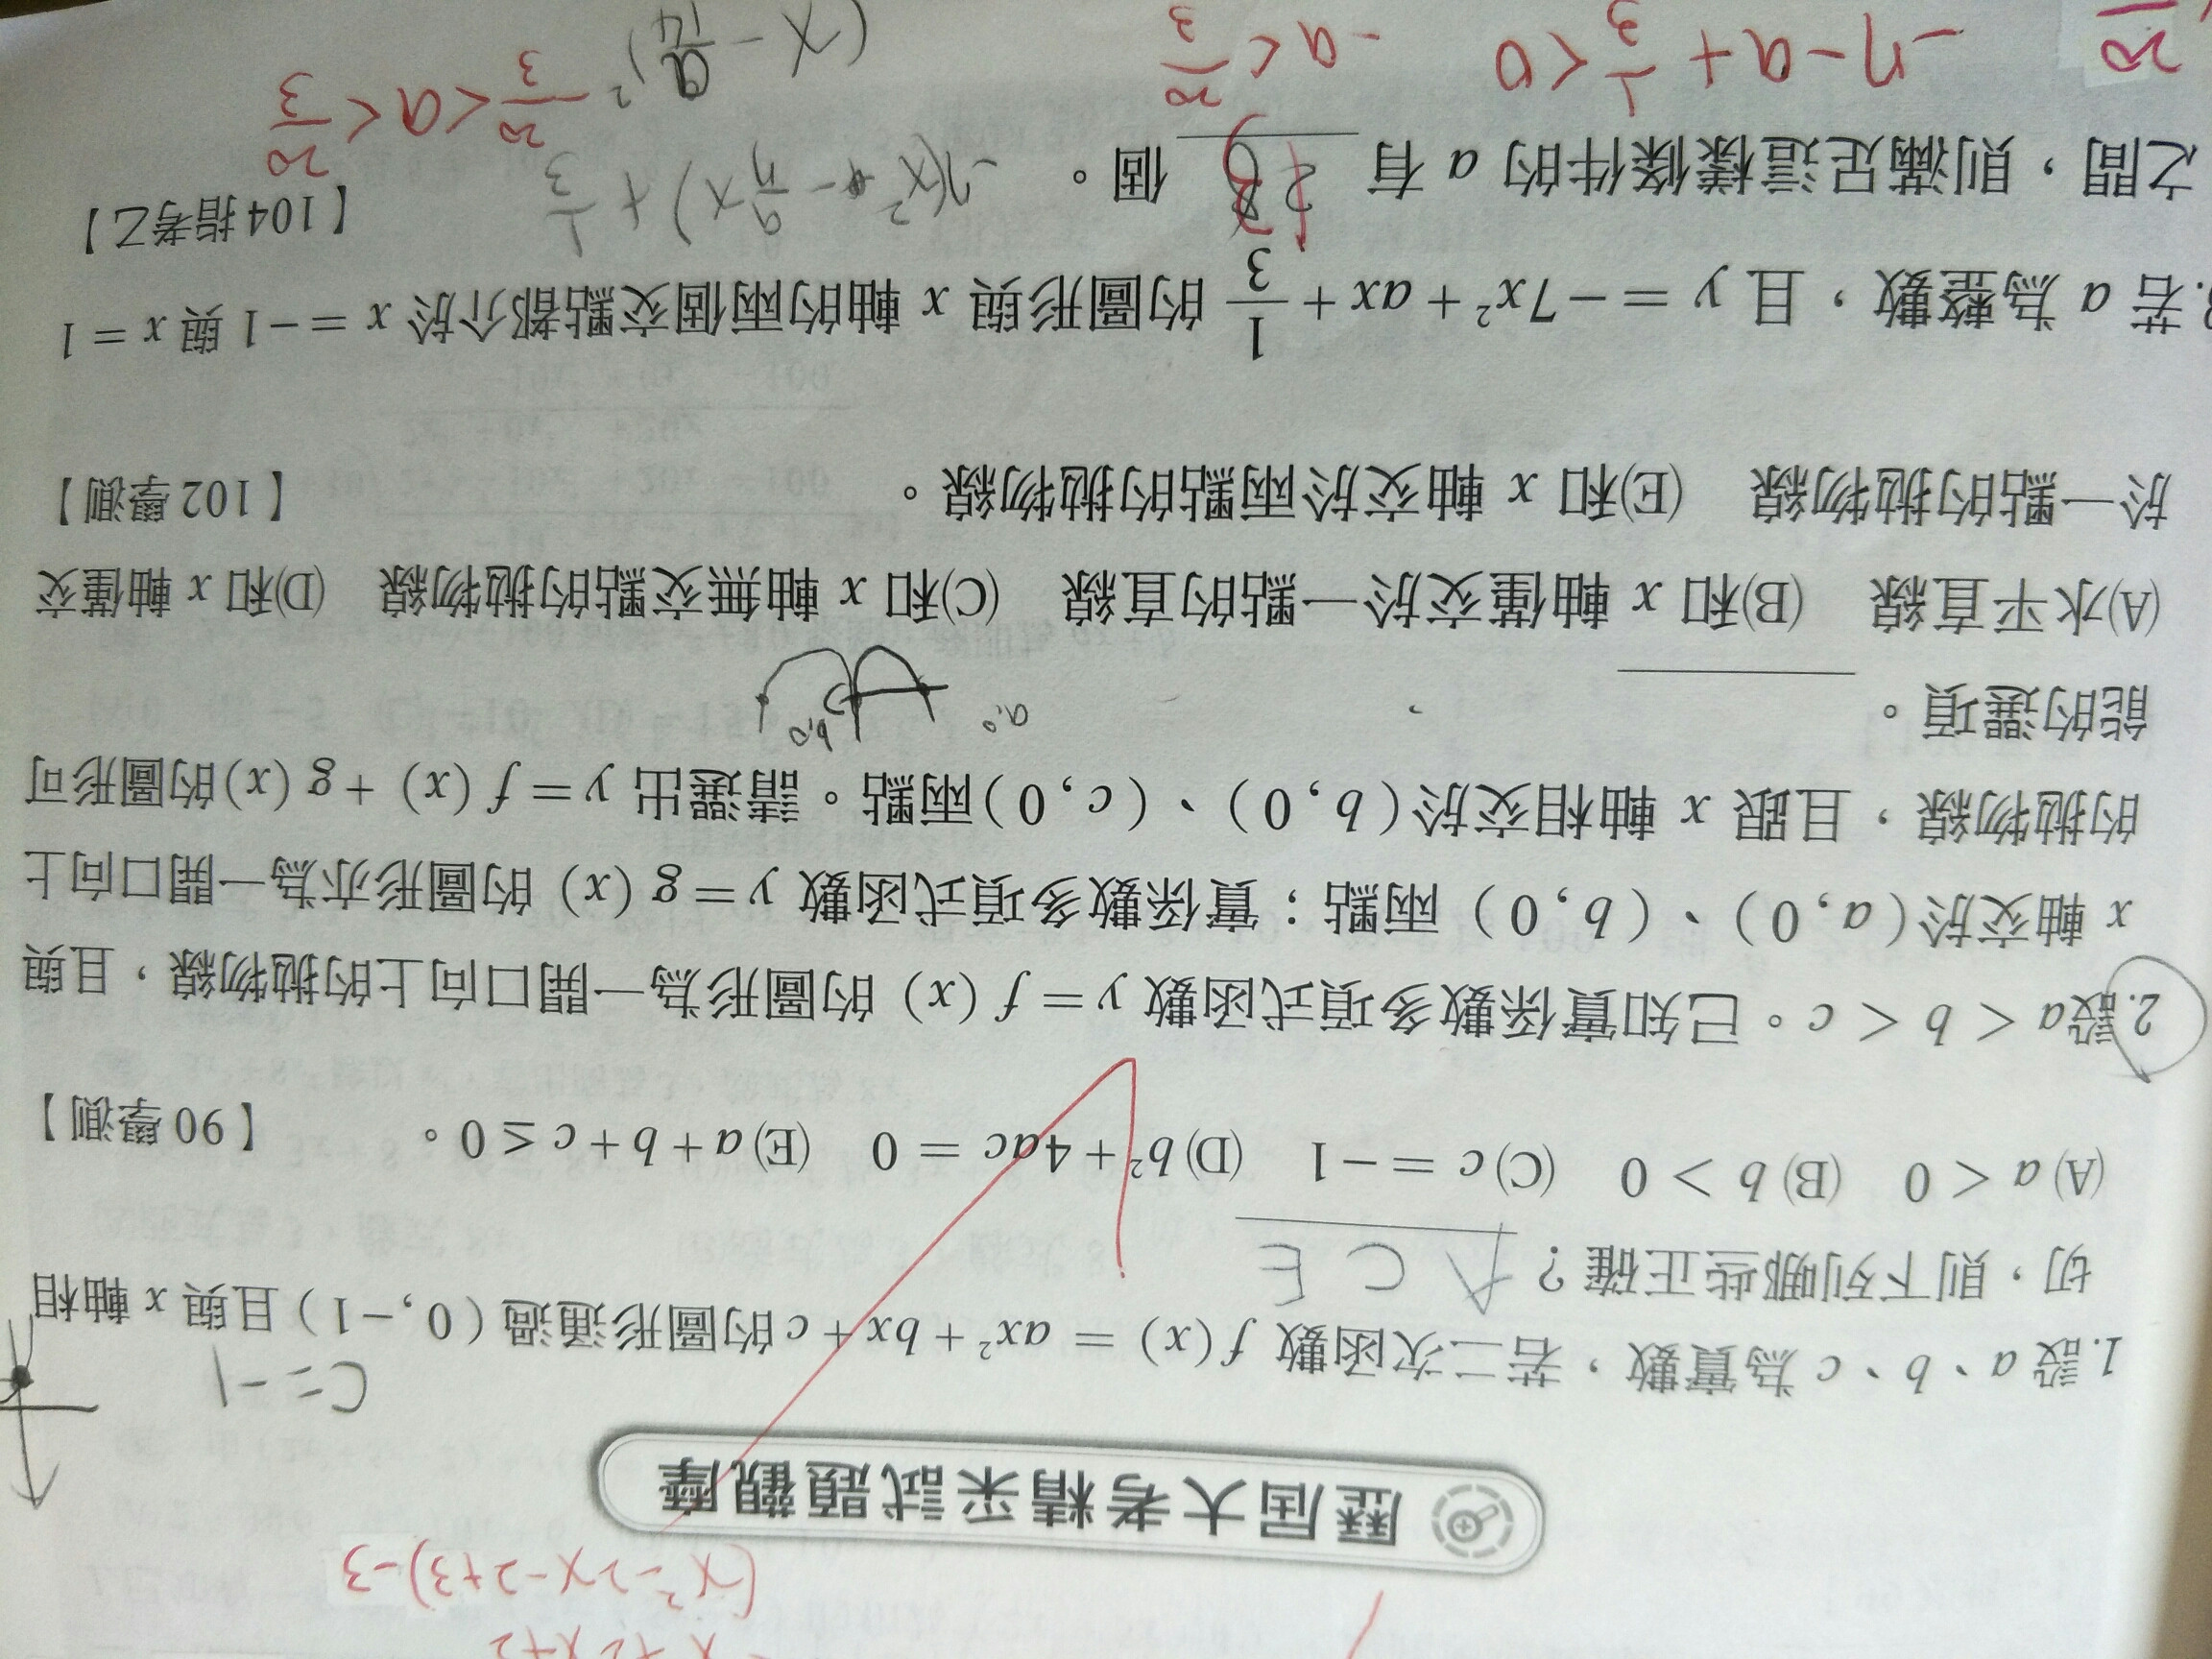 x+2x+2
(x²-2x-2+3)-3
歷屆大考精采試題觀摩
C=-1
1.設 a、b、c 為實數，若二次函數 f(x) = ax²+bx+c的圖形通過(0,-1)且與 x 軸相
切，則下列哪些正確？ A C E
(A) a < 0 (B) b > 0 (C) c = -1 (D) b²+4ac = 0 (E) a+b+c ≤ 0。 【90學測】
2.設a < b < c。已知實係數多項式函數 y = f (x) 的圖形為一開口向上的拋物線，且與
x 軸交於(a,0)、(b,0) 兩點；實係數多項式函數 y = g (x) 的圖形亦為一開口向上
的拋物線，且跟 x 軸相交於(b,0)、(c,0)兩點。請選出 y = f (x) + g (x)的圖形可
能的選項。
a,0
b,0
(A)水平直線 (B)和 x 軸僅交於一點的直線 (C)和 x 軸無交點的拋物線 (D)和 x 軸僅交
於一點的拋物線 (E)和 x 軸交於兩點的拋物線。 【102學測】
若 a 為整數，且 y = -7x² + ax + 1/3 的圖形與 x 軸的兩個交點都介於 x = -1 與 x = 1
之間，則滿足這樣條件的 a 有 13 個。 【104指考乙】
-7(x² - a/7 x) + 1/3
-7-a+1/3<0
-a<20/3
-20/3<a<20/3
(x - a/14)²
20